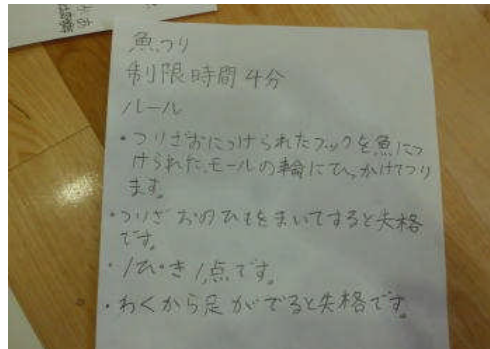 魚つり
制限時間4分
ルール
・つりざおにつけられたフックを魚につ
けられた、モールの輪にひっかけてつり
ます。
・つりざおのひもをまいてすると失格
です。
・1ぴき1点です。
・わくから足がでると失格です。